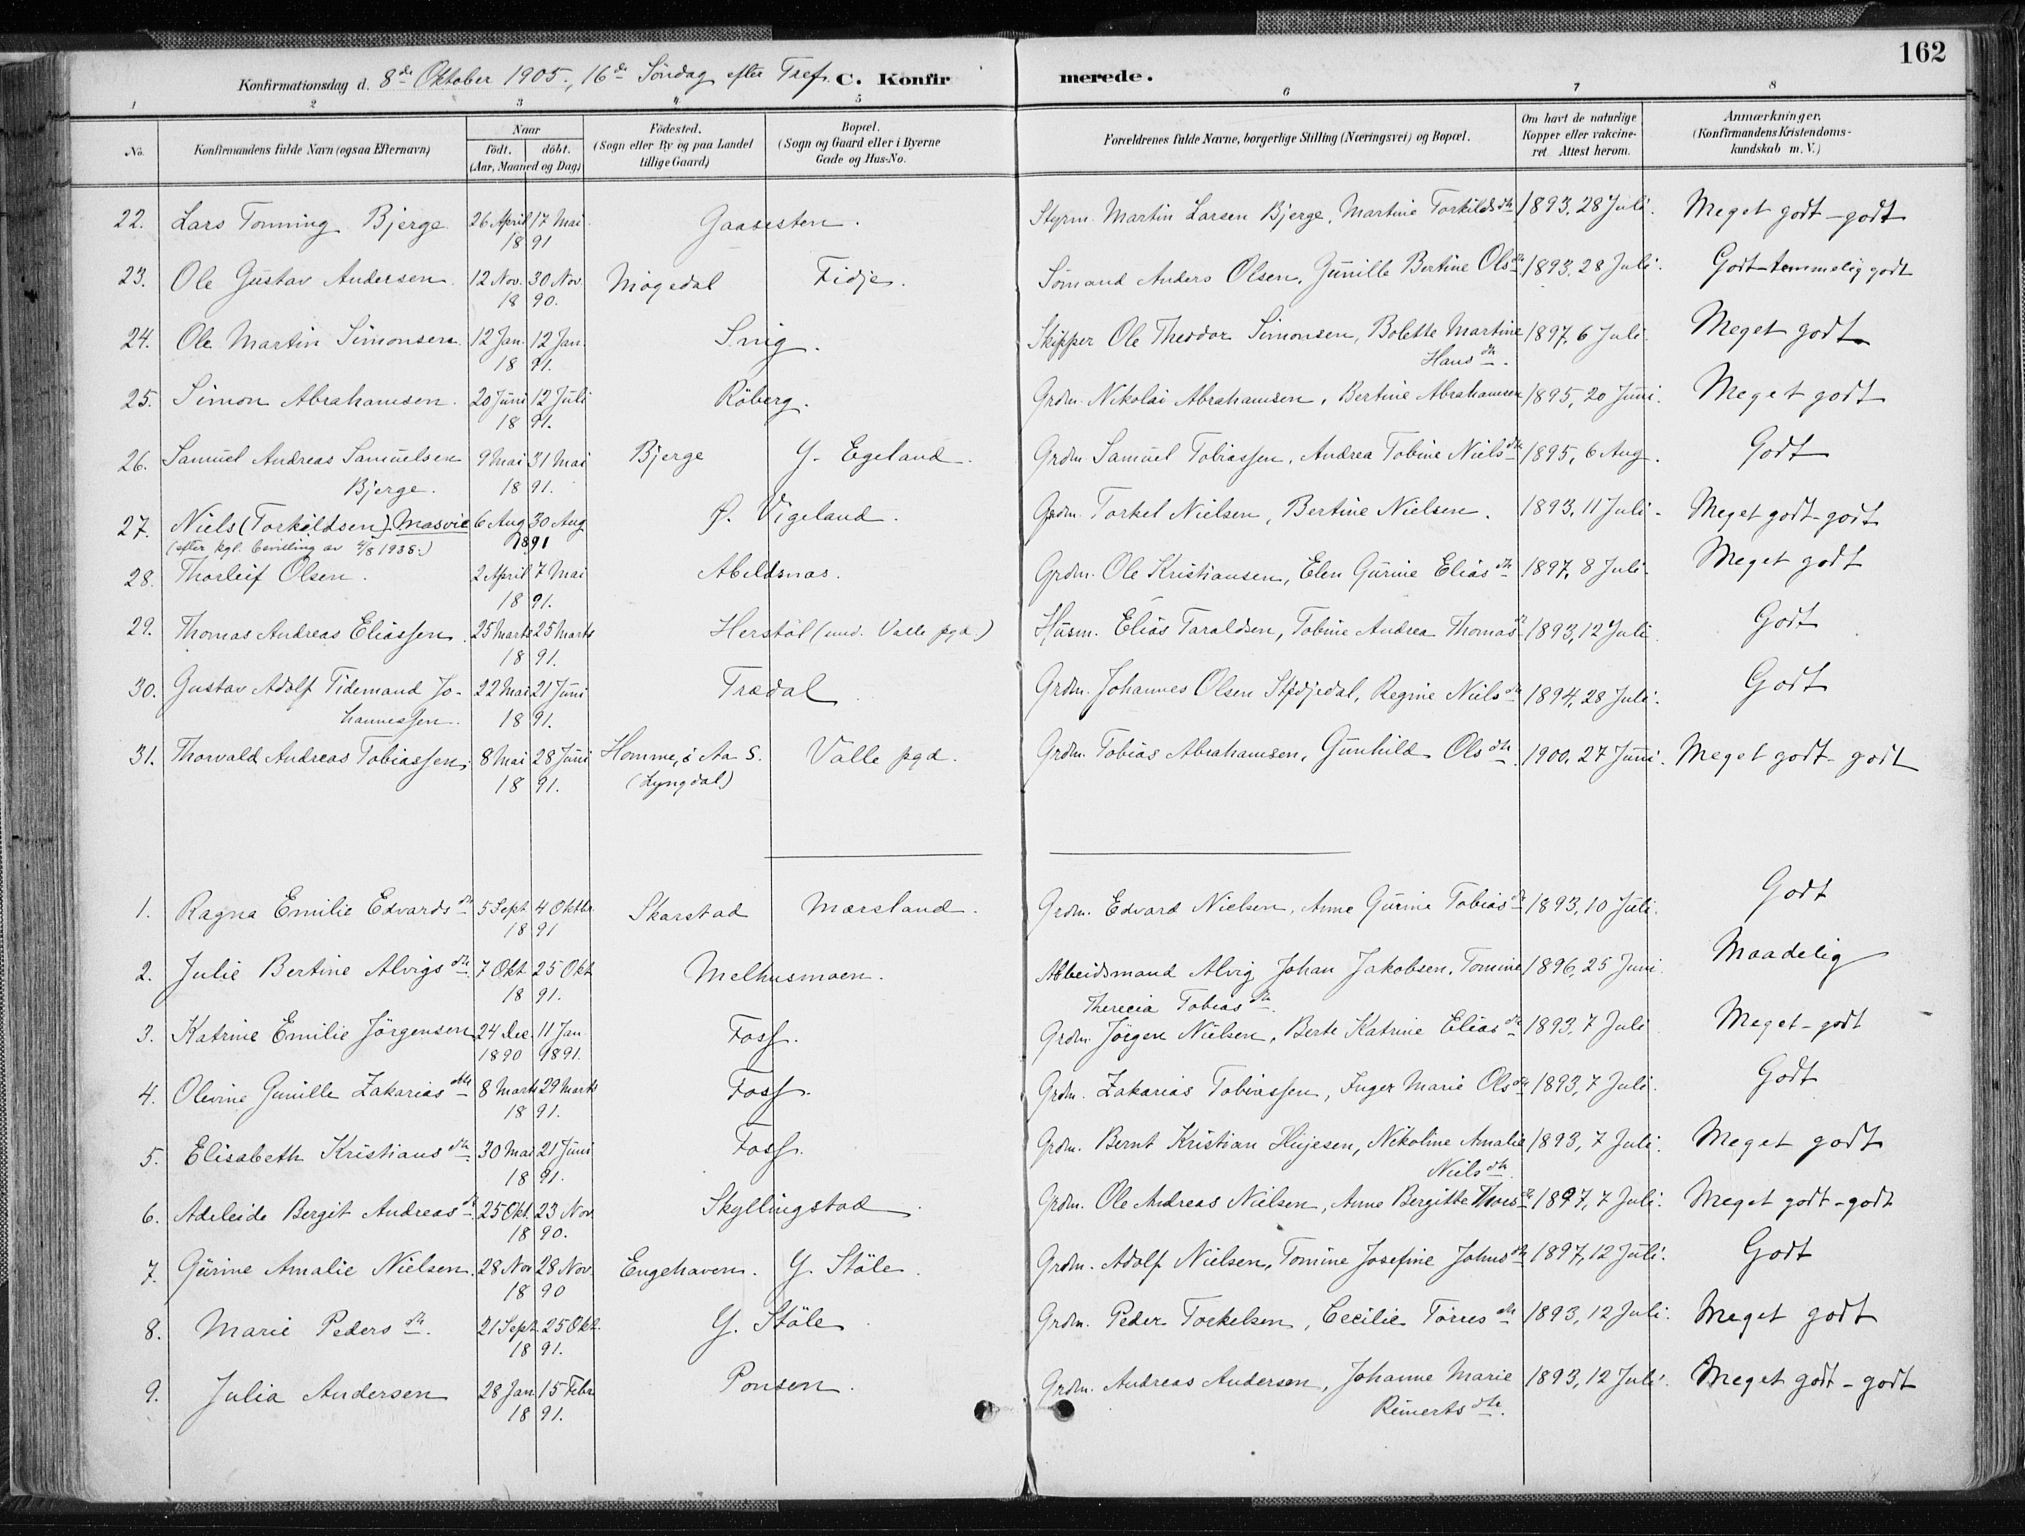 162
Konfirmationsdag d. 8de Oktober 1905, 16de Söndag efter Tref. C. Konfirmerede.
1 2 3 4 5 6 7 8
No. Konfirmandens fulde Navn (ogsaa Efternavn) Naar födt. döbt. (Aar, Maaned og Dag) Födested. (Sogn eller By og paa Landet tillige Gaard) Bopæl. (Sogn og Gaard eller i Byerne Gade og Hus-No. Forældrenes fulde Navne, borgerlige Stilling (Næringsvei) og Bopæl. Om havt de naturlige Kopper eller vakcineret. Attest herom. Anmærkninger. (Konfirmandens Kristendomskundskab m. V.)
22. Lars Tonning Bjerge 26 April 17 Mai Gaasesten. Styrm. Martin Larsen Bjerge, Martine Torkildsdtr 1893, 28 Juli. Meget godt - godt
1891
23. Ole Gustav Andersen 12 Nov. 30 Nov. Mögedal Fidje. Sömand Anders Olsen, Gunille Bertine Olsdtr 1893, 28 Juli. Godt - temmelig godt
1890.
24. Ole Martin Simonsen 12 Jan. 12 Jan. Snig. Skipper Ole Theodor Simonsen, Bolette Martine 1897, 6 Juli. Meget godt
1891. Hansdtr.
25. Simon Abrahamsen. 20 Juni 12 Juli Röberg. Grdm. Nikolai Abrahamsen, Bertine Abrahamsen 1895, 20 Juni. Meget godt
1891.
26. Samuel Andreas Samuelsen 9 Mai 31 Mai Bjerge Y. Egeland. Grdm Samuel Tobiassen, Andrea Tobine Nielsdtr 1895, 6 Aug. Godt
Bjerge. 1891.
27. Niels (Torkildsen) Masvie 6 Aug 30 Aug Ø. Vigeland. Grdm. Torkel Nielsen, Bertine Nielsen. 1893, 11 Juli. Meget godt - godt
(efter kgl. bevilling av 4/8 1938.) 1891
28. Thorleif Olsen. 2 April 7 Mai Abeldsnas. Grdm. Ole Kristiansen, Elen Gurine Eliasdtr 1897, 8 Juli. Meget godt
1891.
29. Thomas Andreas Eliassen. 25 Marts 25 Marts Herstöl (und. Valle pgd.) Husm. Elias Taraldsen, Tobine Andrea Thomasdtr 1893, 12 Juli. Godt
1891.
30. Gustav Adolf Tidemand Jo- 22 Mai 21 Juni Trædal Grdm. Johannes Olsen, Regine Nielsdtr 1894, 28 Juli. Godt
hannessen. 1891.
31. Thorvald Andreas Tobiassen. 8 Mai 28 Juni Homme, i Aa S. Valle pgd. Grdm. Tobias Abrahamsen, Gunhild Olsdtr. 1900, 27 Juni. Meget godt - godt
1891. (Lyngdal)
1. Ragna Emilie Edvardsdtr 5 Sept 4 Oktbr Skarstad Mærsland. Grdm. Edvard Nielsen, Anne Gurine Tobiasdtr 1893, 10 Juli. Godt
1891
2. Julie Bertine Alvigsdtr. 7 Okt 25 Okt Melhusmoen. Abbeidsmand Alvig Johan Jakobsen, Tomine 1896, 25 Juni. Maadelig
1891. Therecia Tobiasdtr.
3. Katrine Emilie Jörgensen 24 Dec 11 Jan Foss. Grdm. Jörgen Nielsen, Berte Katrine Eliasdtr 1893, 7 Juli Meget - godt
1890 1891.
4. Olevine Gunille Zakariasdtr 8 Marts 29 Marts Foss. Grdm. Zakarias Tobiassen, Inger Marie Olsdtr 1893, 7 Juli. Godt
1891.
5. Elisabeth Kristiansdtr. 30 Mai 21 Juni Foss. Grdm. Bernt Kristian Hujesen, Nikoline Amalie 1893, 7 Juli. Meget godt
1891. Nielsdtr.
6. Adeleide Bergit Andreasdtr. 25 Okt 23 Nov. Skyllingstad Grdm. Ole Andreas Nielsen, Anne Bergitte Thorsdtr 1897, 7 Juli. Meget godt - godt
1890.
7. Gurine Amalie Nielsen. 28 Nov 28 Nov. Engehaven. Y. Stöle. Grdm. Adolf Nielsen, Tomine Josefine Johnsdtr 1897, 12 Juli. Godt
1890
8. Marie Pedersdtr. 21 Sept. 25 Okt. Y. Stöle. Grdm. Peder Torkelsen, Cecilie Torresdtr 1893, 12 Juli. Meget godt
1891.
9. Julia Andersen 28 Jan 15 Febr Ponsen. Grdm. Andreas Andersen, Johanne Marie 1893, 12 Juli. Meget godt - godt
1891. Reinertsdtr.